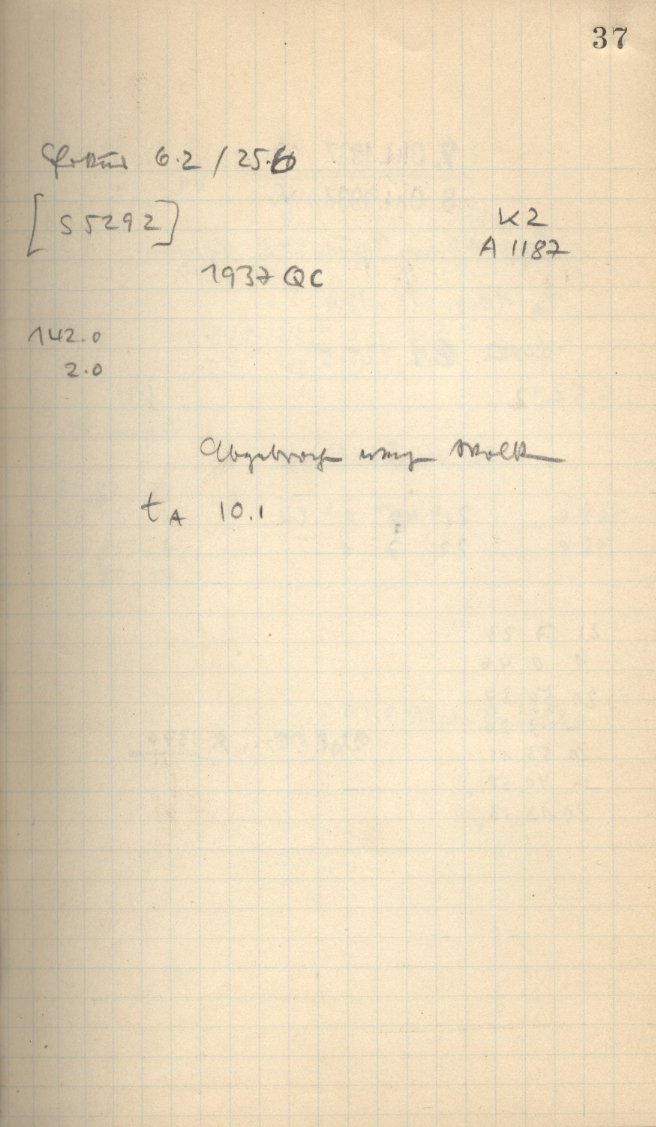 37
Fokus 6.2 / 25.6
[S 5292]
K2
A 1187
1937 QC
142.0
2.0
Abgebrochen wegen Wolken
t A 10.1